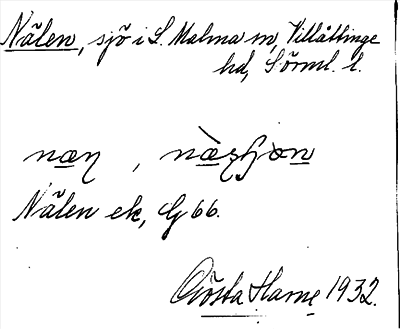 Nälen, sjö i L. Malma sn, Villåttinge
hd, Sörml. l.
næn, næ̀sʃɔn
Nälen ek, G 66.
Gösta Harne 1932.